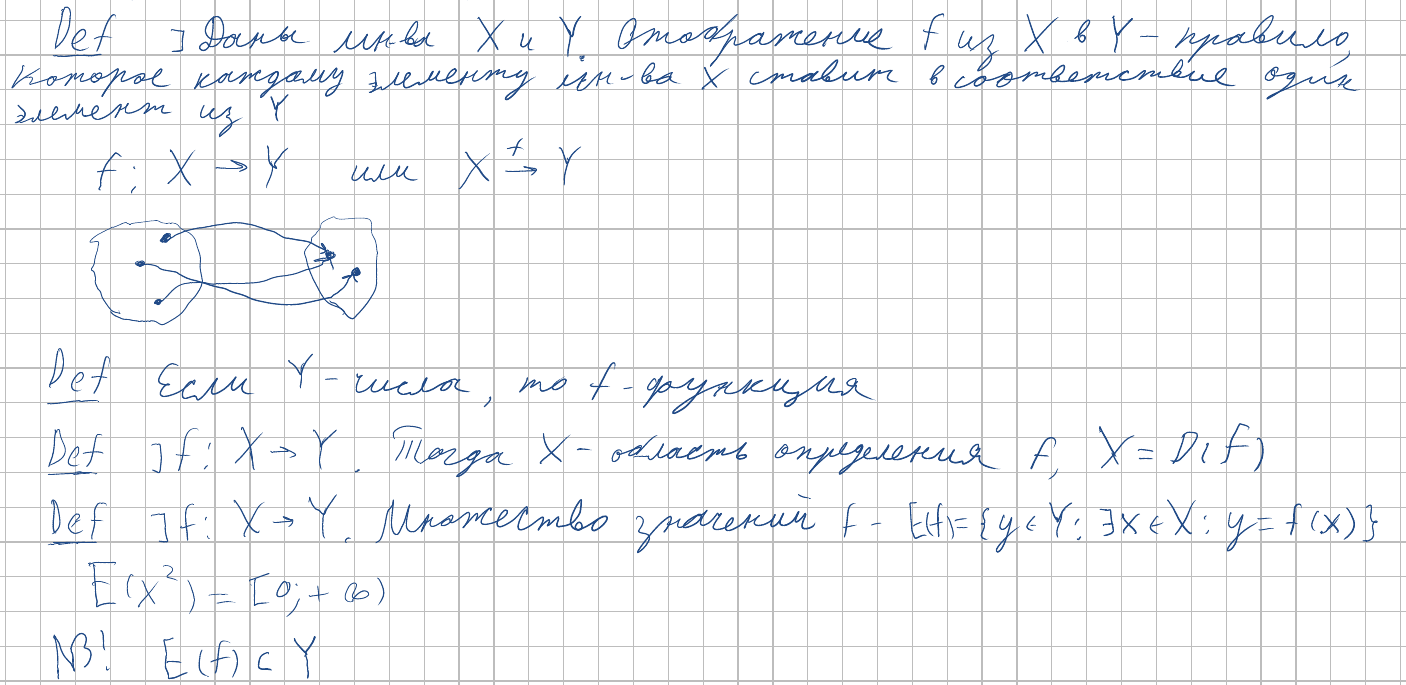 Def ] Даны мн-ва X и Y. Отображение f из X в Y - правило,
которое каждому элементу мн-ва X ставит в соответствие один
элемент из Y
f: X → Y или X →^f Y
Def Если Y - числа, то f - функция
Def ] f: X → Y. Тогда X - область определения f, X = D(f)
Def ] f: X → Y. Множество значений f - E(f) = {y ∈ Y: ∃x ∈ X: y = f(x)}
E(x²) = [0; +∞)
NB! E(f) ⊂ Y